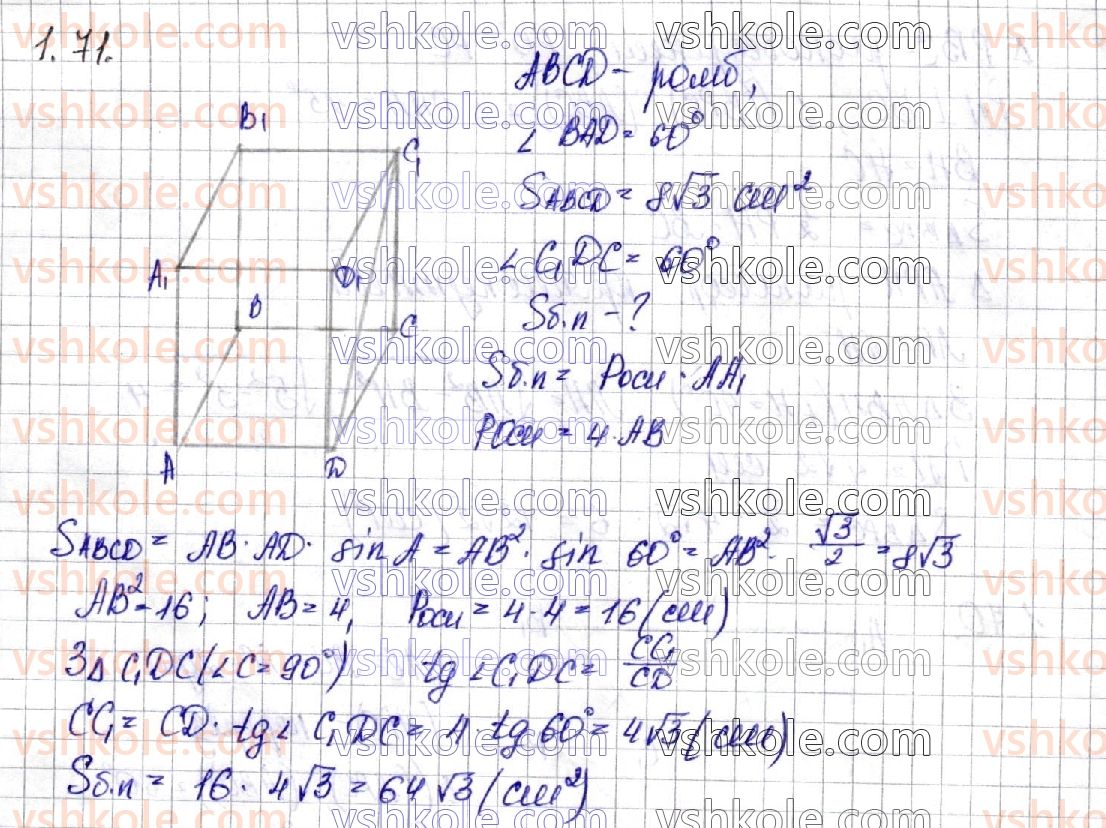 1.71.
vshkole.com
ABCD – ромб,
∠ BAD = 60°
S_ABCD = 8√3 см²
∠ C₁DC = 60°
Sб.п – ?
Sб.п = Pосн · AA₁
Pосн = 4 · AB
B₁
C₁
A₁
D₁
B
C
A
D
S_ABCD = AB · AD · sin A = AB² · sin 60° = AB² · √3/2 = 8√3
AB² = 16; AB = 4, Pосн = 4 · 4 = 16 (см)
З Δ C₁DC (∠C = 90°) tg ∠ C₁DC = CC₁/CD
CC₁ = CD · tg ∠ C₁DC = 4 · tg 60° = 4√3 (см)
Sб.п = 16 · 4√3 = 64√3 (см²)